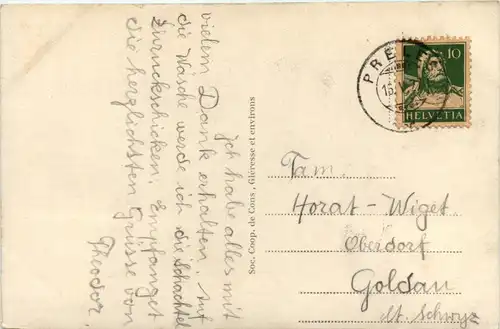 Ich habe alles mit
vielem Dank erhalten. Auf
die Wäsche werde ich die Schachtel
zurückschicken. Empfanget
die herzlichsten Grüsse von
Theodor.
Soc. Coop. de Cons., Gléresse et environs
10
HELVETIA
Fam.
Horat-Wiget
Oberdorf
Goldau
Kt. Schwyz